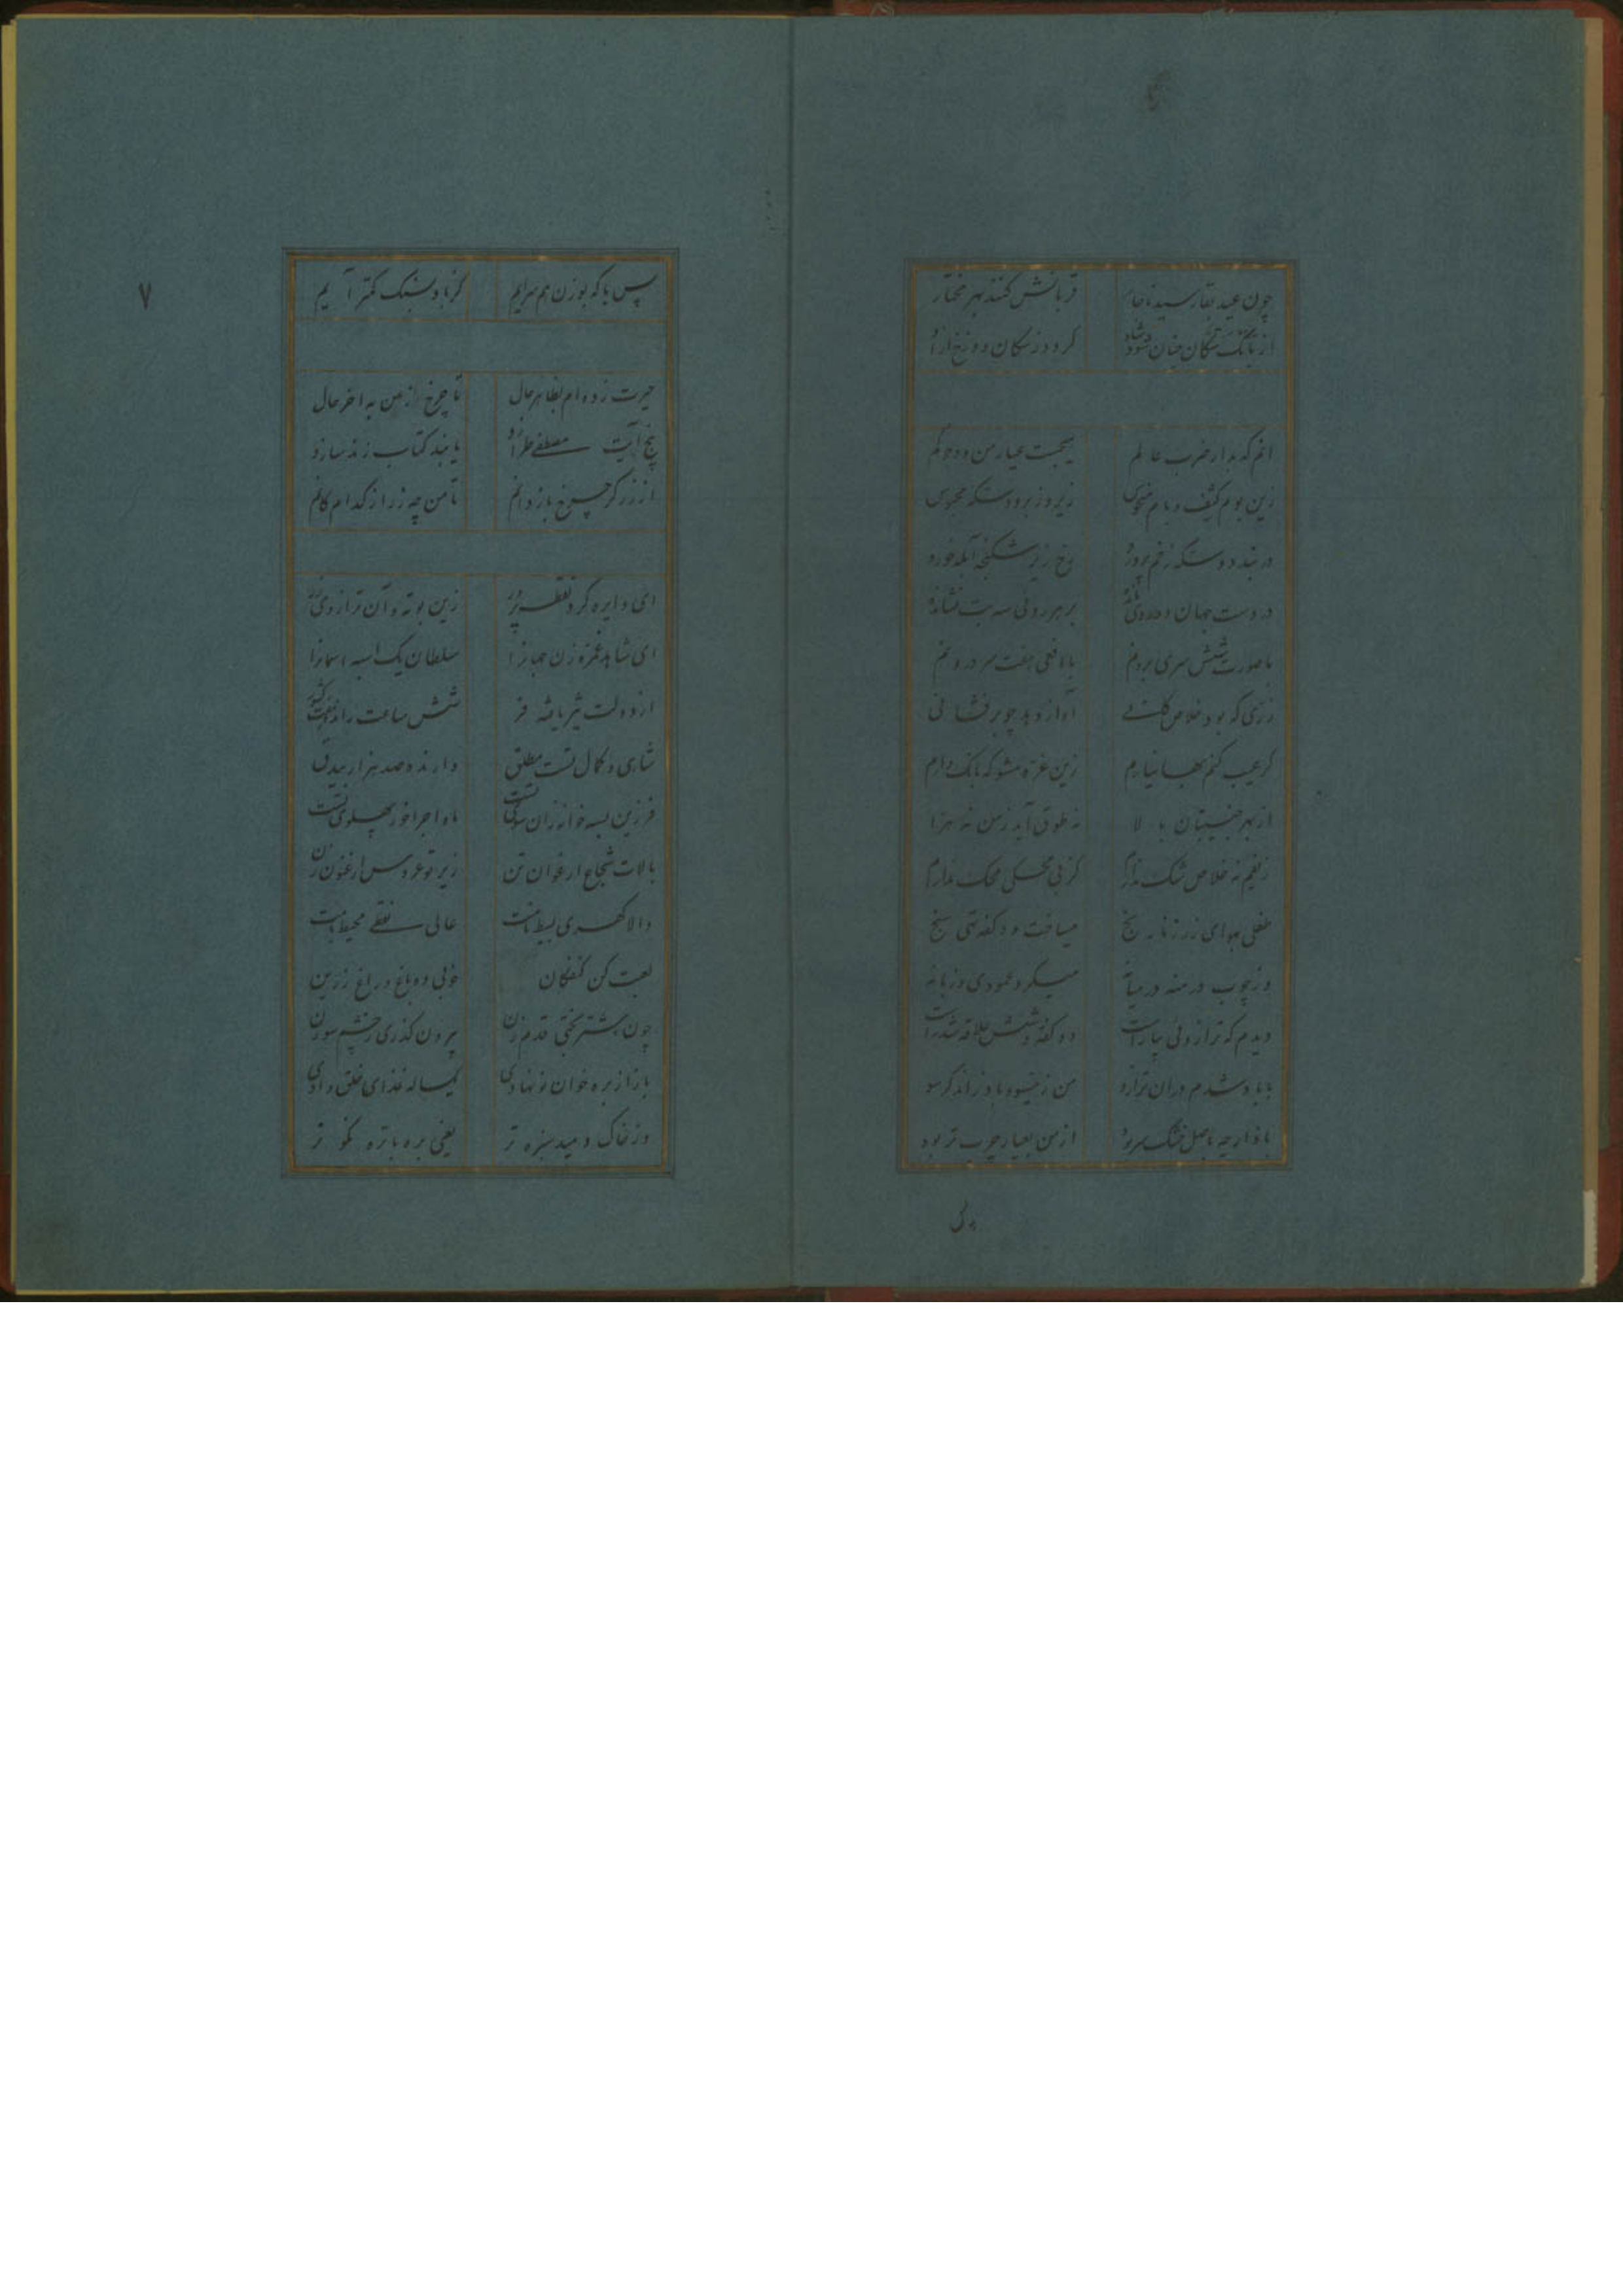 چون عید بقا رسید ناچار قربانش کنند بهر مختار
از بانگ سگان چنان شود شاد کردد ز سکان دوزخ آزاد
انم که بدار ضرب عالم هیچست عیار من ودم کم
زین بوم کثیف و بام زیر و زبر دو سکه محبوس
در بند دو سکه زخم پرورد رخ زیر شکنجه آبله خورد
در دست جهان بر هر روئی سه بت نشانده
با صورت شش سری برونم با افعی هفت سر درونم
زری که بود خلاص کانی آواز دهد چو برفشانی
کر عیب کنم بها نیارم زین غره مشو که بانک دارم
از بهر جنیبتان بالا نه طوق آید ز من نه هرا
زلفیم نه خلاص شک ندارم کز بی محکی محک ندارم
طفلی بهوای زر ز نارنج میساخت دو کفه تهی سنج
وز چوب در منه در میانه میکرد عمودی و زبانه
دیدم که ترازوئی بیاراست دو کفه و شش علاقه شد راست
با باد شدم دران ترازو من زینسو و باد از اندکر سو
باد ارچه باصل خشک سر بود از من بعیار چرب تر بود
پس با که بوزن هم سرایم کز باد سبک کمتر آیم
حیرت زده ام بظاهر حال تا چرخ از من به اخر حال
پنج آیت مصطفی طرازد یا بند کتاب زند سازد
از زرکر چرخ باز دانم تا من چه زر از کدام کانم
ای دایره کرد نقطه پرور زین بوته و آن ترازوی زر
ای شاهد غمزه زن جهانرا سلطان یک اسبه اسمانرا
از دولت تیر یافته فر شش ساعت رانده هفت کشور
شاهی و کمال تست مطلق دارنده صد هزار بیدق
فرزین بسه خانه زان سوی تست ماه اجرا خور پهلوی تست
بالات شجاع ارغوان تن زیر تو عروس ارغنون زن
والا کهری بسیط عالی نقطی محیط
لعبت کن کنفکان خوبی ده باغ و راغ رزین
چون بختی قدم زن بیرون کذری ز چشم سوزن
باز از بره خوان نو نهادی یکساله غذای خلق دادی
وز خاک دمید سبزه تر یعنی بره با تره نکو تر
۷